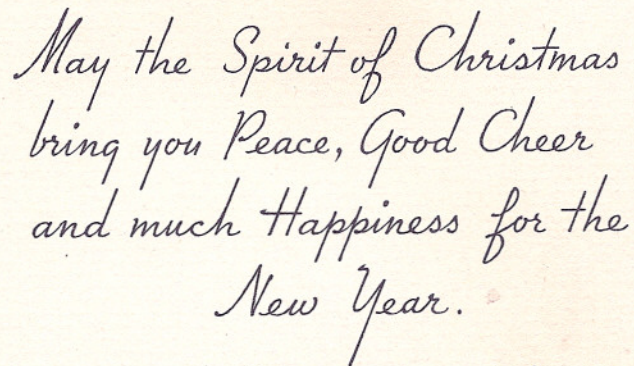 May the Spirit of Christmas
bring you Peace, Good Cheer
and much Happiness for the
New Year.